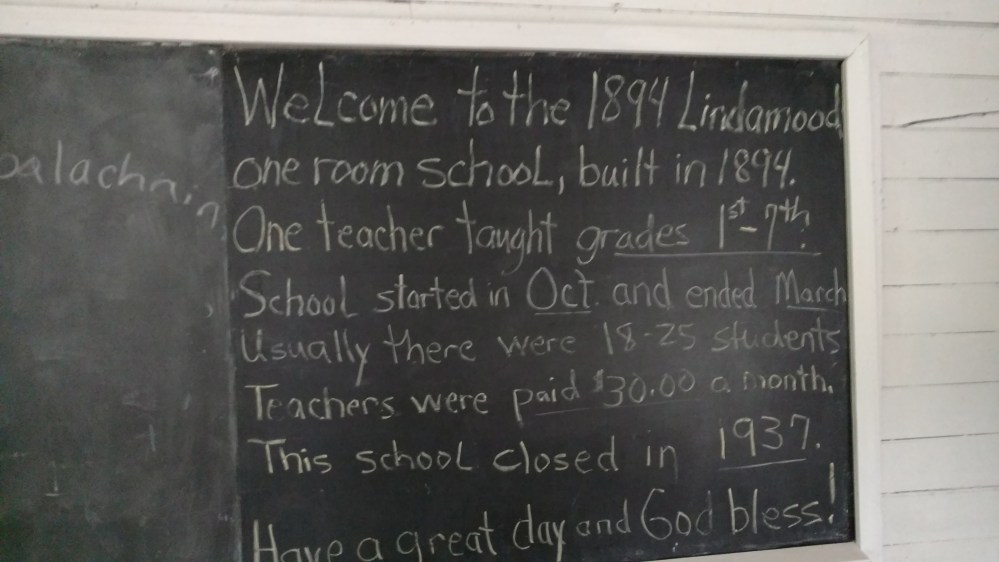 Welcome to the 1894 Lindamood
one room school, built in 1894.
One teacher taught grades 1st-7th.
School started in Oct. and ended March
Usually there were 18-25 students
Teachers were paid $30.00 a month.
This school closed in 1937.
Have a great day and God bless!